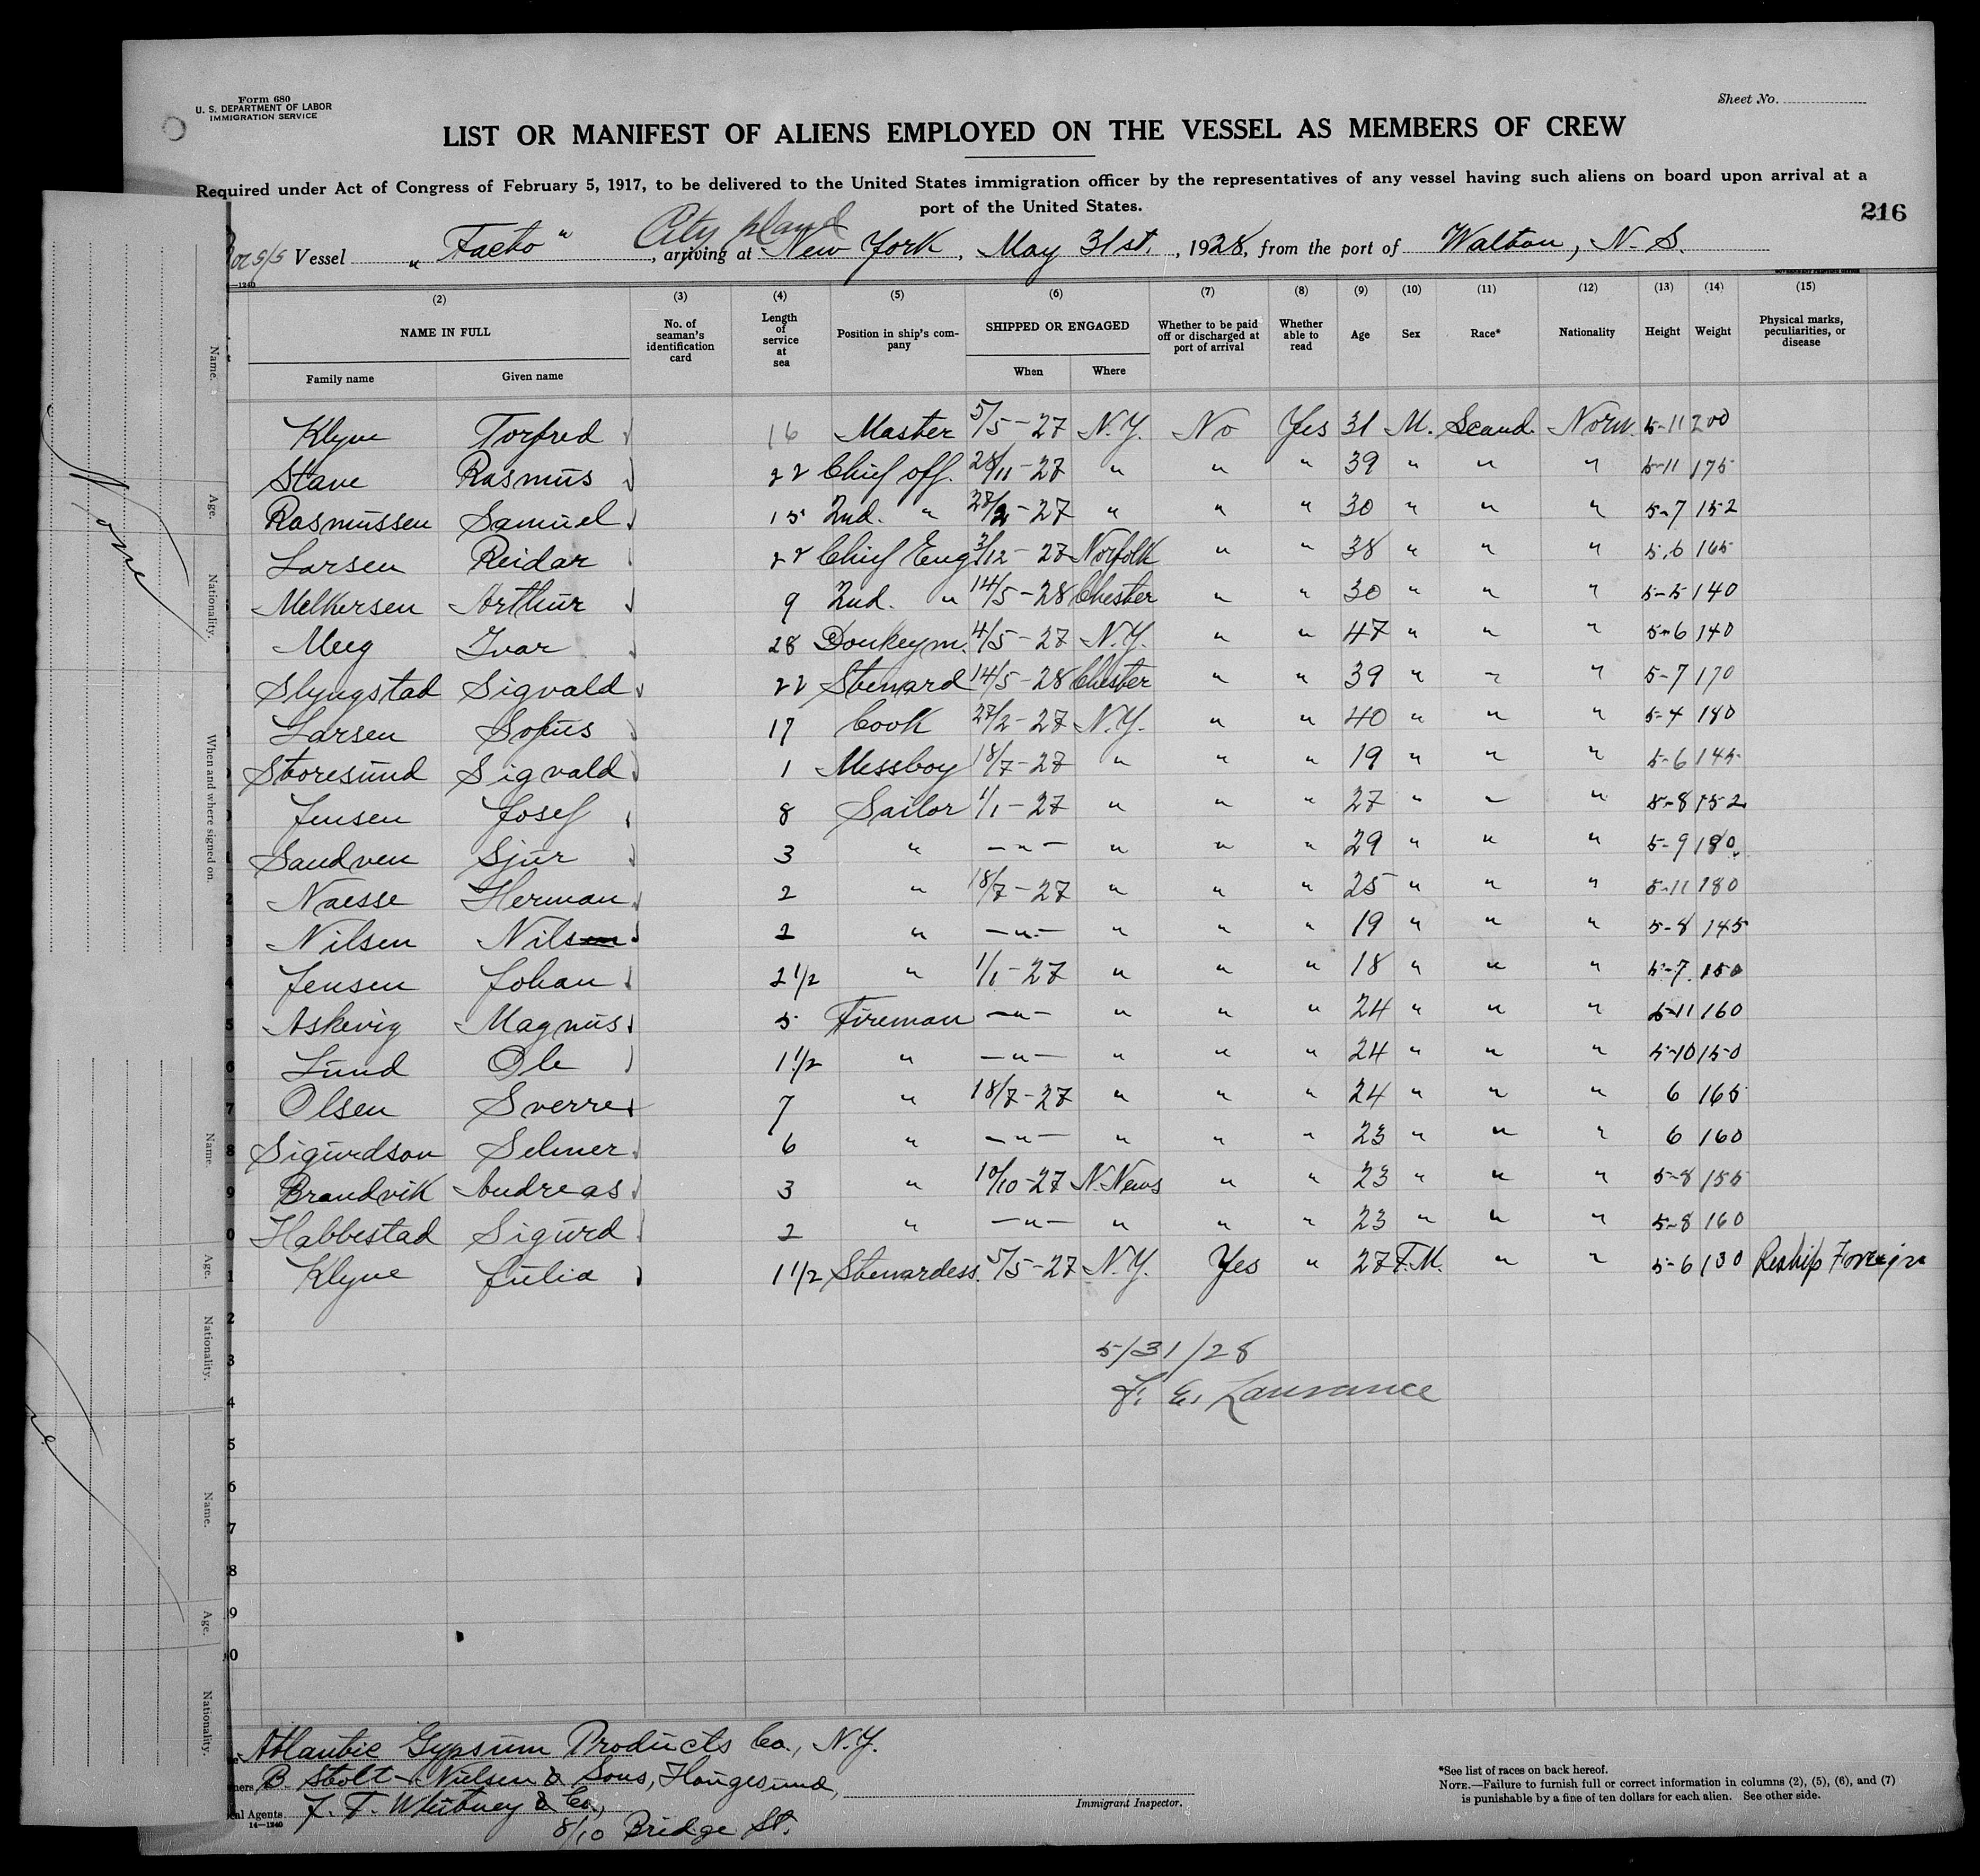 Form 680
U. S. DEPARTMENT OF LABOR
IMMIGRATION SERVICE
Sheet No.
LIST OR MANIFEST OF ALIENS EMPLOYED ON THE VESSEL AS MEMBERS OF CREW
Required under Act of Congress of February 5, 1917, to be delivered to the United States immigration officer by the representatives of any vessel having such aliens on board upon arrival at a
port of the United States.
216
S/S Vessel "Facto", arriving at New York, May 31st, 1928, from the port of Walton, N. S.
(2) (3) (4) (5) (6) (7) (8) (9) (10) (11) (12) (13) (14) (15)
NAME IN FULL No. of seaman's identification card Length of service at sea Position in ship's company SHIPPED OR ENGAGED Whether to be paid off or discharged at port of arrival Whether able to read Age Sex Race* Nationality Height Weight Physical marks, peculiarities, or disease
Family name Given name When Where
Klyve Torfred 16 Master 5/5-27 N.Y. No Yes 31 M. Scand. Norw. 5-11 200
Stave Rasmus 22 Chief off. 28/11-27 " " " 39 " " " 5-11 175
Rasmussen Samuel 15 2nd. " 27/2-27 " " " 30 " " " 5-7 152
Larsen Reidar 22 Chief Eng. 3/12-27 Norfolk " " 38 " " " 5-6 165
Melkersen Arthur 9 2nd. " 14/5-28 Chester " " 30 " " " 5-5 140
Meeg Ivar 28 Donkeym. 4/5-27 N.Y. " " 47 " " " 5-6 140
Slyngstad Sigvald 22 Steward 14/5-28 Chester " " 39 " " " 5-7 170
Larsen Sofus 17 Cook 27/2-27 N.Y. " " 40 " " " 5-4 180
Storesund Sigvald 1 Messboy 18/7-27 " " " 19 " " " 5-6 145
Jensen Josef 8 Sailor 1/1-27 " " " 27 " " " 5-8 152
Sandven Sjur 3 " -"- " " " 29 " " " 5-9 180
Naesse Herman 2 " 18/7-27 " " " 25 " " " 5-11 180
Nilsen Nilsen 2 " -"- " " " 19 " " " 5-8 145
Jensen Johan 2 1/2 " 1/1-27 " " " 18 " " " 5-7 150
Askevig Magnus 5 Fireman -"- " " " 24 " " " 5-11 160
Lund Ole 1 1/2 " -"- " " " 24 " " " 5-10 150
Olsen Sverre 7 " 18/7-27 " " " 24 " " " 6 165
Sigurdson Selmer 6 " -"- " " " 23 " " " 6 160
Brandvik Andreas 3 " 10/10-27 N. News " " 23 " " " 5-8 155
Habbestad Sigurd 2 " -"- " " " 23 " " " 5-8 160
Klyve Julia 1 1/2 Stewardess. 5/5-27 N.Y. Yes " 27 F.M. " " 5-6 130 Reship Foreign
5/31/28
F. E. Laurance
Atlantic Gypsum Products Co., N.Y.
B. Stolt-Nielsen & Sons, Haugesund,
Agents F. T. Whitney & Co.,
14-1240
8/10 Bridge St.
Immigrant Inspector.
*See list of races on back hereof.
NOTE.—Failure to furnish full or correct information in columns (2), (5), (6), and (7)
is punishable by a fine of ten dollars for each alien. See other side.
Name.
Age.
Nationality.
When and where signed on.
Name.
Age.
Nationality.
Name.
Age.
Nationality.
None